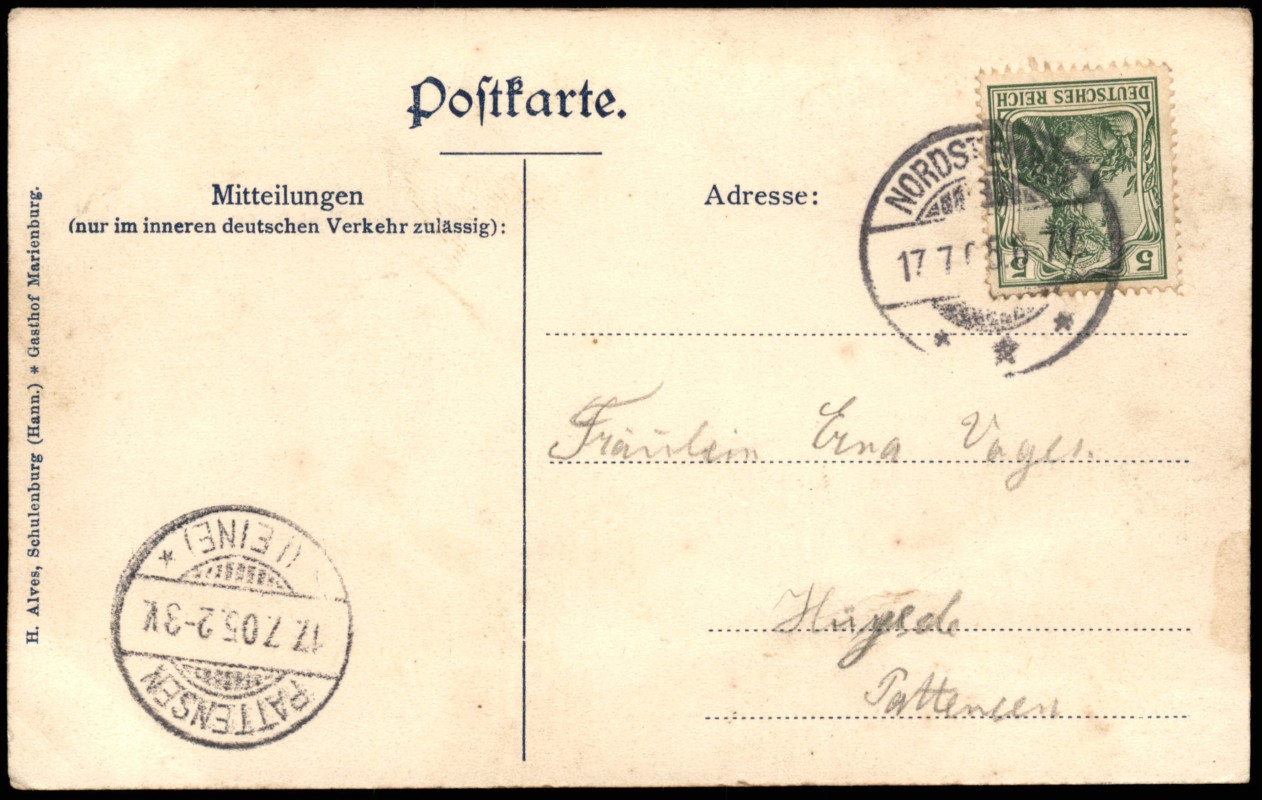 Postkarte.
Mitteilungen
(nur im inneren deutschen Verkehr zulässig):
Adresse:
DEUTSCHES REICH
5 5
17.7.05.
Fräulein Erna Voges.
Pattensen
PATTENSEN
17.7.05.2-3V.
(LEINE)
H. Alves, Schulenburg (Hann.) * Gasthof Marienburg.